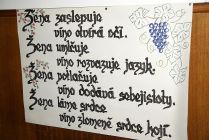 Žena zaslepuje
víno otvírá oči.
Žena umlčuje
víno rozvazuje jazyk.
Žena potlačuje
víno dodává sebejistoty.
Žena láme srdce
víno zlomené srdce hojí.